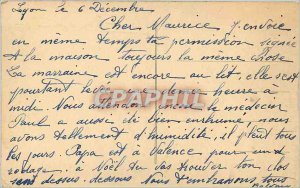 Lyon le 6 Décembre
Cher Maurice j'envoie
en même temps ta permission signée
A la maison toujours la même chose
La marraine est encore au lit, elle s'est
pourtant levée une heure à
midi. Nous attendons le médecin
Paul a aussi été bien enrhumé, nous
avons tellement d'humidité, il pleut tous
les jours. Papa est à Valence pour un
à Noël tu vas trouver ton
sens dessus dessous. Nous t'embrassons tous